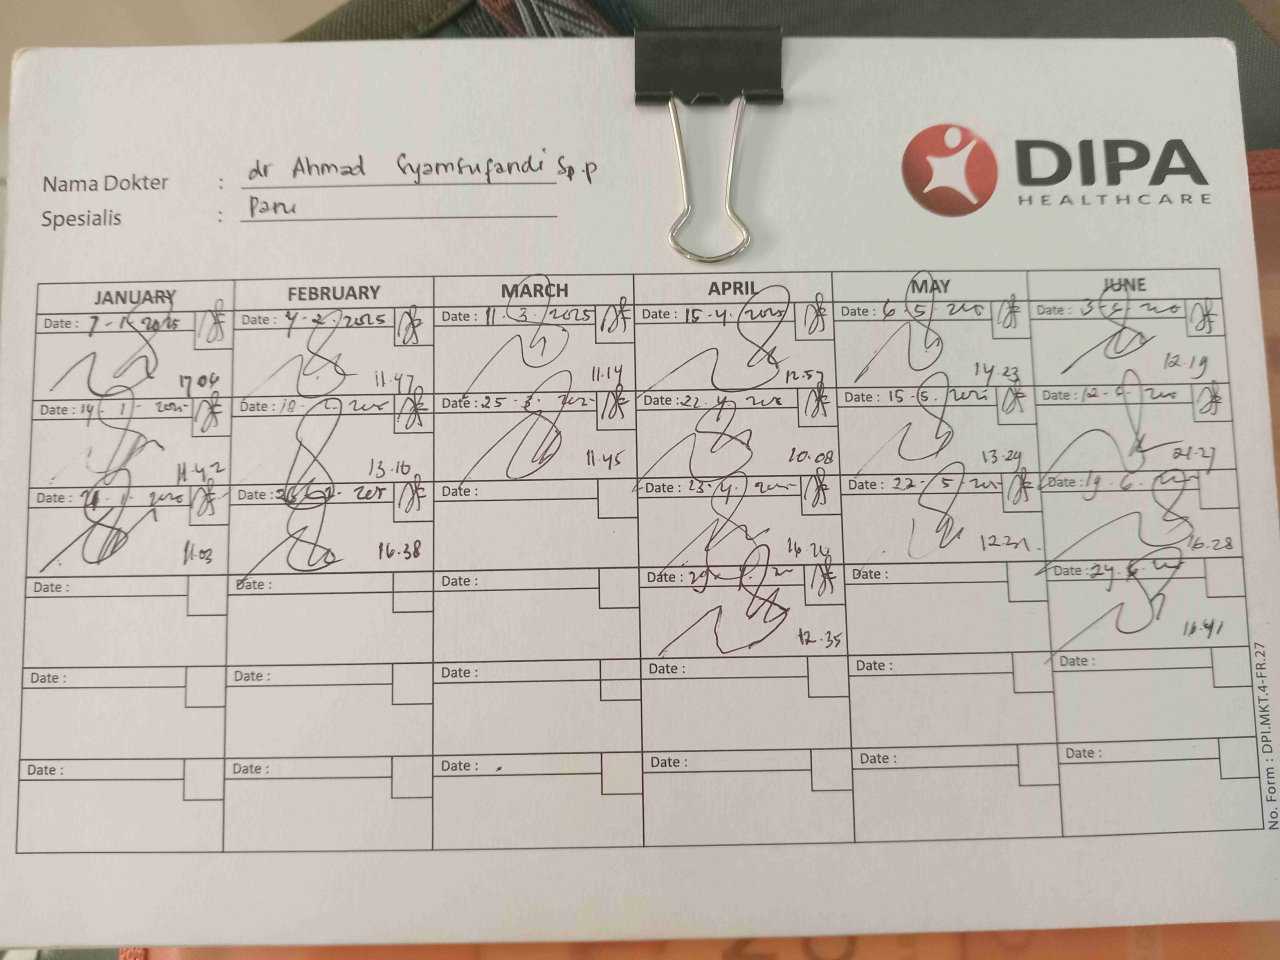 DIPA
HEALTHCARE
Nama Dokter : dr Ahmad Syamsufandi Sp.p
Spesialis : Paru
JANUARY FEBRUARY MARCH APRIL MAY JUNE
Date : 7-1-2025 Date : 4-2-2025 Date : 11.3.2025 Date : 15-4-2025 Date : 6.5. Date : 3
17.04 11.47 11.14 12.57 14.23 12.19
Date : 14.1- Date : 18-2- Date : 25-3- Date : 22.4 Date : 15-5. Date : 12-
11.42 13.16 11.45 10.08 13.29 21.27
Date : 21.1- Date : Date : Date : 23.4. Date : 22-5- Date : 19.6.
11.03 16.38 16.24 16.28
Date : Date : Date : Date : 29 Date : Date : 24.6.
12.35 16.41
Date : Date : Date : Date : Date : Date :
Date : Date : Date : Date : Date : Date :
No. Form : DPI.MKT.4-FR.27